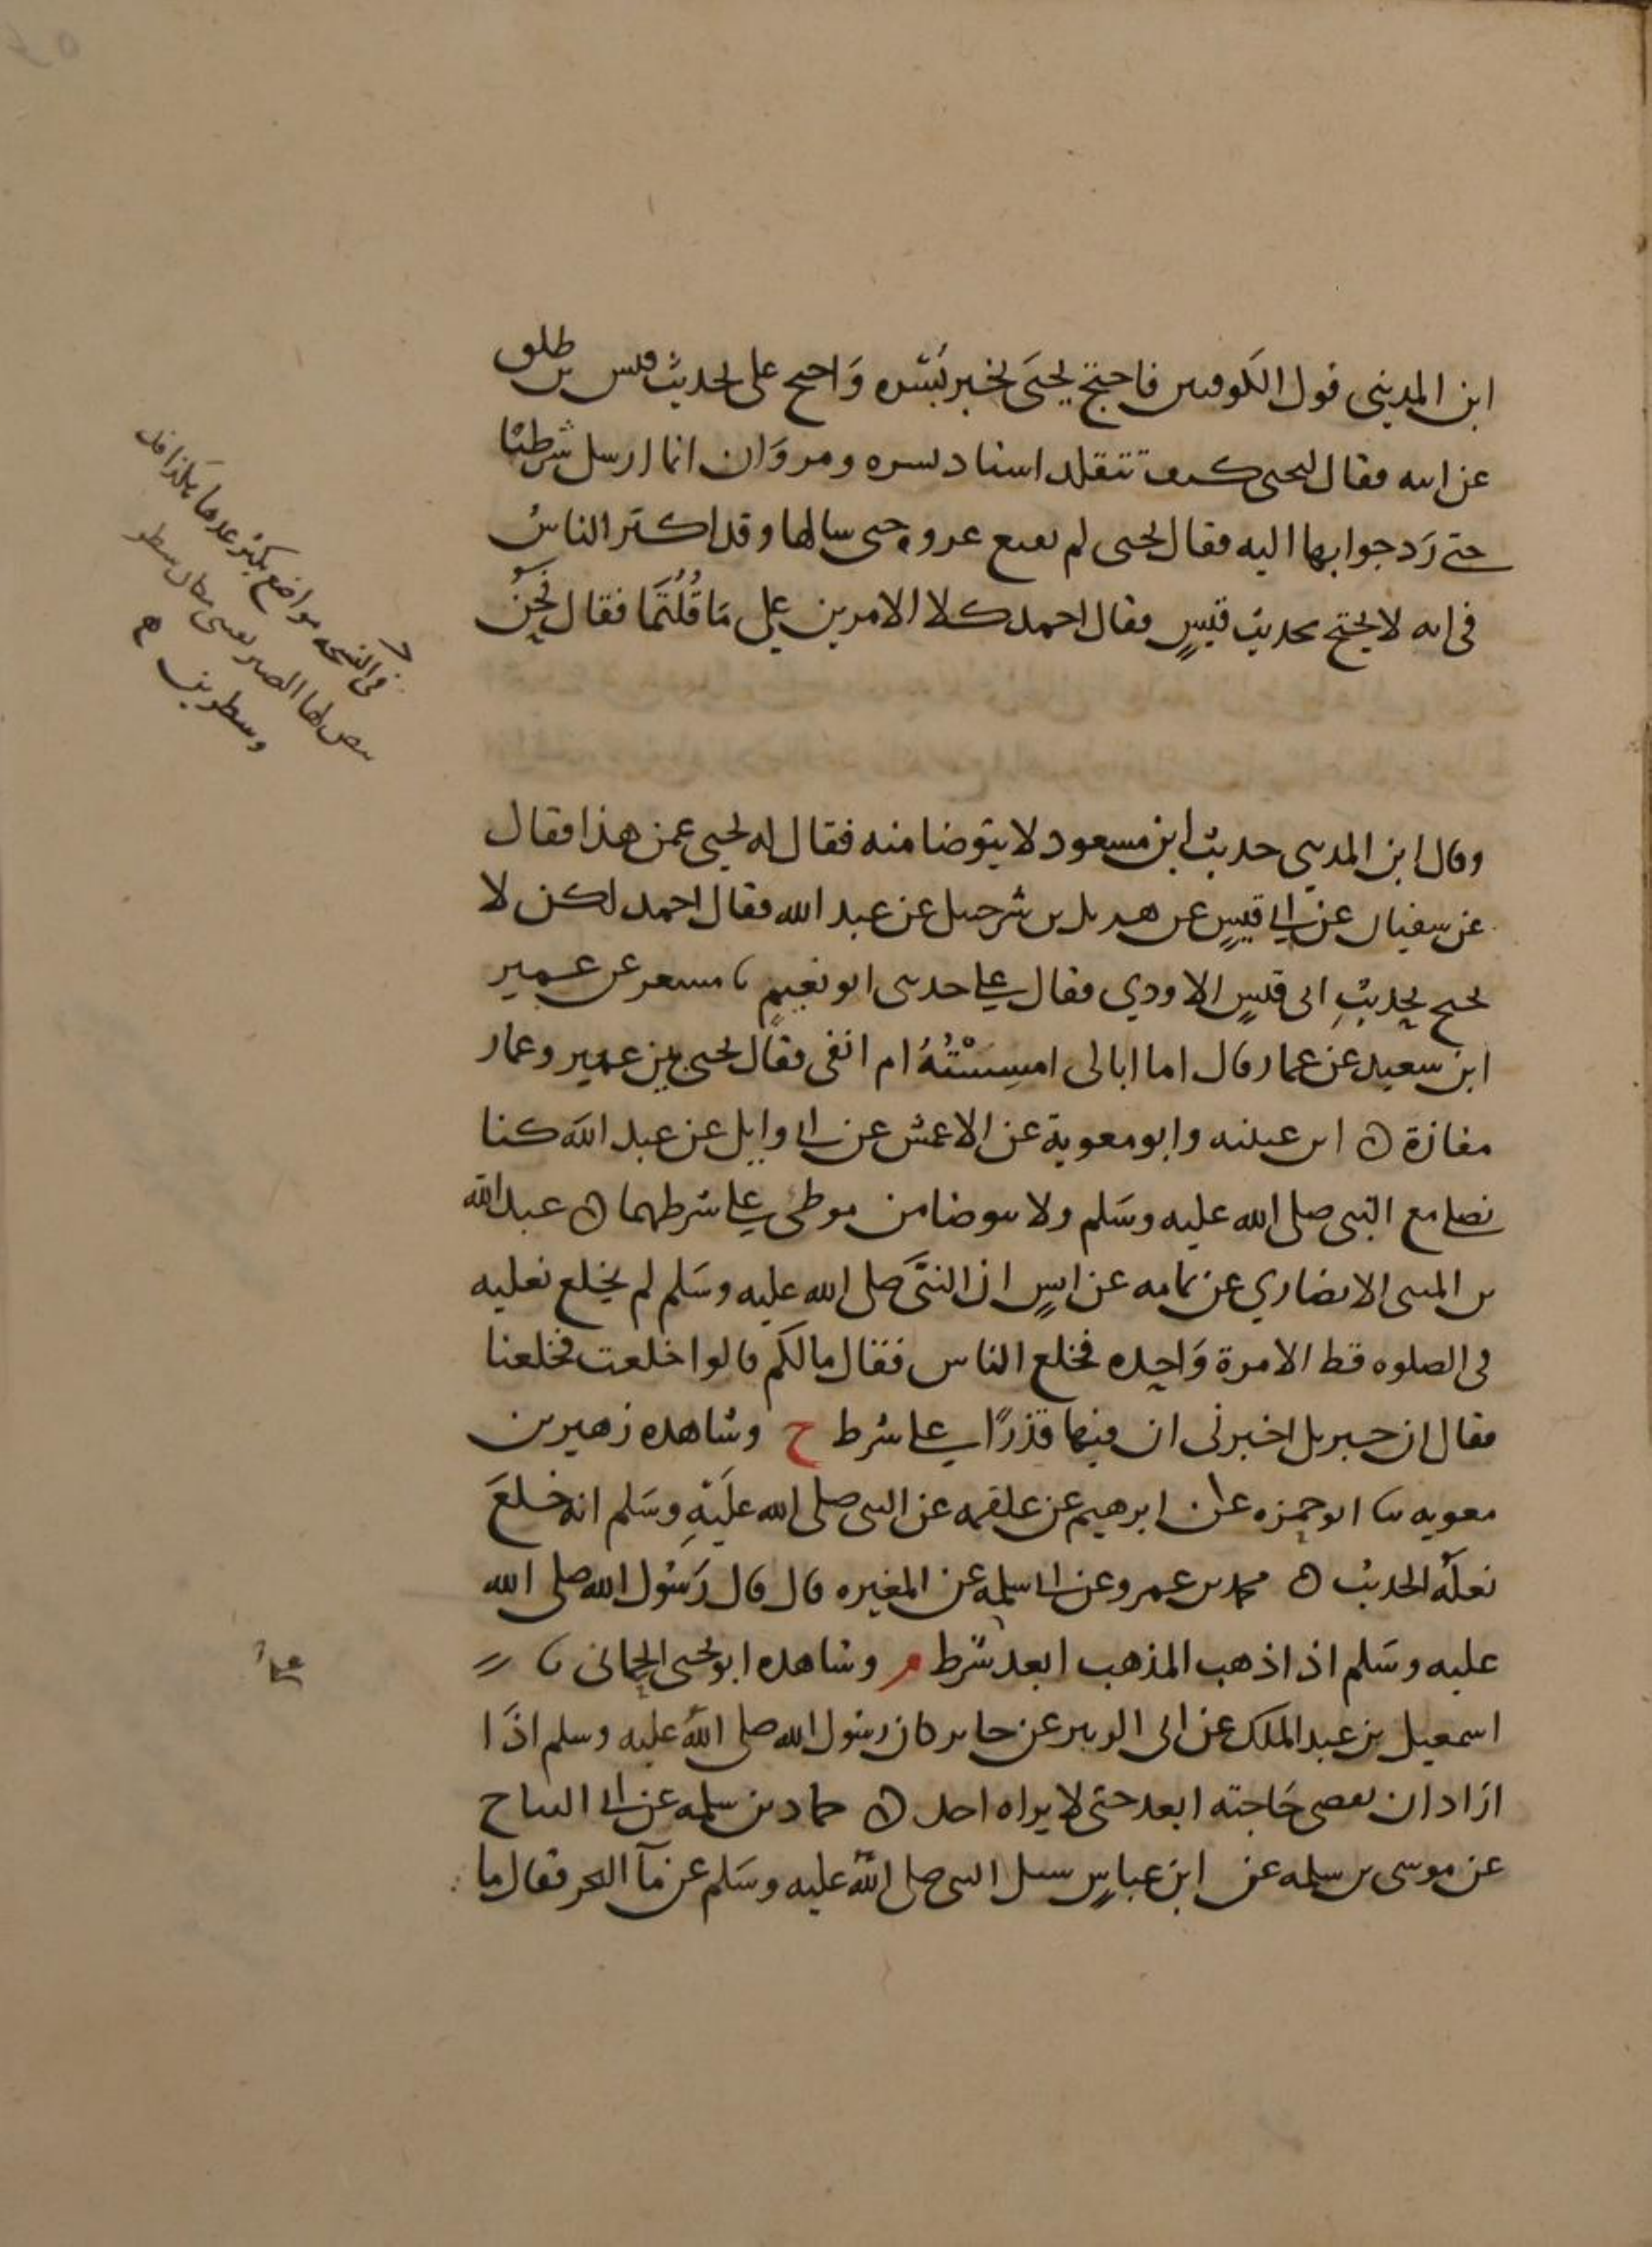 ابن المديني قول الكوفيين فاحتج يحيى بخبر بُسْره وَاحتج على بحديث قيس بن طلق
عن ابيه فقال ليحيى كيف تتقلد اسناد بسره ومروَان انما ارسل شرطيًا
حتى رَد جوابها اليه فقال يحيى لم يقنع عروه حتى سالها وقد اكثر الناسُ
في انه لا يحتج بحديث قيسٍ فقال احمد كلا الامرين على مَا قُلْتُمَا فقال يحيى
وقال ابن المديني حديث ابن مسعود لا يتوضا منه فقال له يحيى عمن هذا فقال
عن سفيان عن ابي قيسٍ عن هذيل بن شرحبيل عن عبد الله فقال احمد لكن لا
يحتج بحديثِ ابى قيسٍ الاودي فقال علي حدثنى ابو نعيمٍ نا مسعر عن عمير
ابن سعيد عن عمار قال اما ابالى امسِسْتُهُ ام انفى فقال يحيى بين عمير وعمار
مفازة ه ابن عيينه وابو معوية عن الاعمش عن ابى وايل عن عبد الله كنا
نصلى مع النبى صلى الله عليه وسَلم ولا نتوضا من موطئ على شرطهما ه عبد الله
بن المثنى الانصاري عن ثمامه عن انسٍ ان النبىَّ صلى الله عليه وسَلم لم يخلع نعليه
فى الصلوه قط الا مرة وَاحِده فخلع الناس فقال مالكم قالوا خلعت فخلعنا
فقال ان جبريل اخبرنى ان فيهما قذرًا على شرط خ وشاهده زهير بن
معويه نا ابو حمزه عن ابرهيم عن علقمه عن النبى صلى الله عليهِ وسَلم انه خلعَ
نعلَهُ الحديث ه محمد بن عمرو عن ابى سلمه عن المغيره قال قال رَسُول الله صلى الله
عليه وسَلم اذا ذهب المذهب ابعد شرط م وشاهده ابو يحيى الحمانى نا
اسمعيل بن عبد الملك عن ابى الزبير عن جابر كان رسول الله صلى الله عليه وسلم اذَا
ارَاد ان يقضى حَاجته ابعد حتى لا يراه احد ه حماد بن سلمه عن ابى التياح
عن موسى بن سلمه عن ابن عباسٍ سئل النبى صلى الله عليه وسَلم عن مآ البحر فقال ما
فى النسخه مواضع يكثر عدها هكذا قد
سطر
وسطرين ه